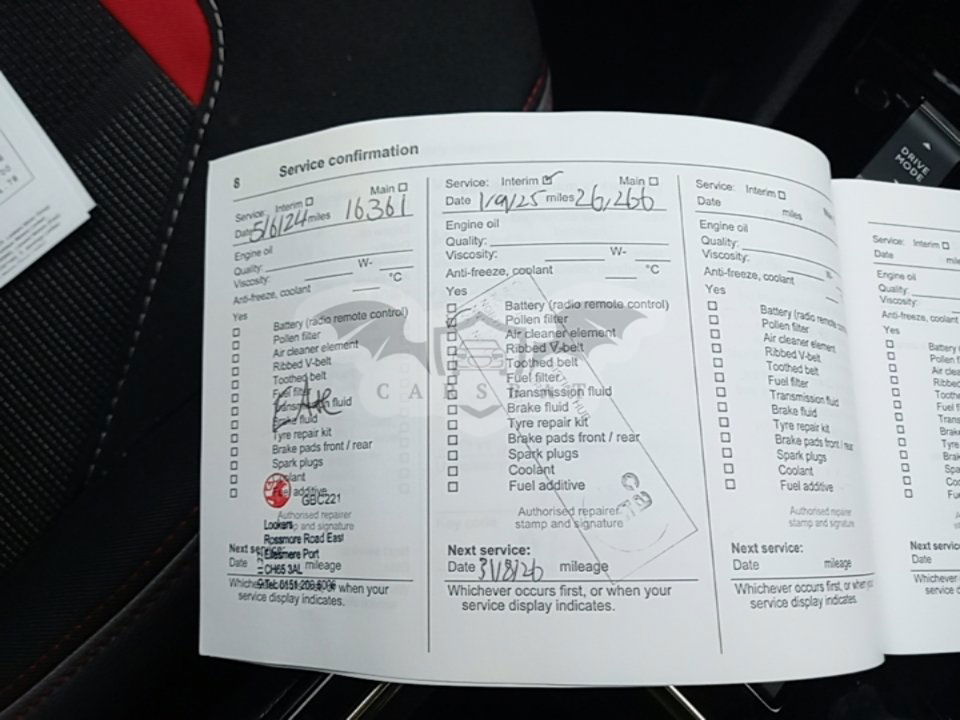 8 Service confirmation
Service: Interim Main
Date 5/6/24 miles 16361
Engine oil
Quality:
Viscosity: W-
Anti-freeze, coolant °C
Yes
Battery (radio remote control)
Pollen filter
Air cleaner element
Ribbed V-belt
Toothed belt
Fuel filter
Transmission fluid
Brake fluid
Tyre repair kit
Brake pads front / rear
Spark plugs
Coolant
Fuel additive
GBC221
Authorised repairer
stamp and signature
Lookers
Rossmore Road East
Ellesmere Port
CH65 3AL
Tel: 0151
Next service:
Date mileage
Whichever occurs first, or when your
service display indicates.
Service: Interim Main
Date 1/9/25 miles 26,266
Engine oil
Quality:
Viscosity: W-
Anti-freeze, coolant °C
Yes
Battery (radio remote control)
Pollen filter
Air cleaner element
Ribbed V-belt
Toothed belt
Fuel filter
Transmission fluid
Brake fluid
Tyre repair kit
Brake pads front / rear
Spark plugs
Coolant
Fuel additive
Authorised repairer
stamp and signature
Next service:
Date 31/8/26 mileage
Whichever occurs first, or when your
service display indicates.
Service: Interim
Date miles
Engine oil
Quality:
Viscosity: W-
Anti-freeze, coolant
Yes
Battery (radio remote
Pollen filter
Air cleaner element
Ribbed V-belt
Toothed belt
Fuel filter
Transmission fluid
Brake fluid
Tyre repair kit
Brake pads front / rear
Spark plugs
Coolant
Fuel additive
Authorised repairer
stamp and signature
Next service:
Date mileage
Whichever occurs first, or when your
service display indicates.
Service: Interim
Date
Engine oil
Quality:
Viscosity:
Anti-freeze, coolant
Yes
Battery
Pollen
Air
Ribbed
Fuel
Brake
Tyre
Brake
Spark
Next service:
Date
Whichever
service
DRIVE
MODE